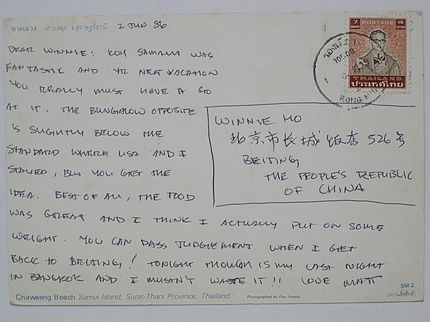 2 JUN 86
DEAR WINNIE: KOH SAMUI WAS
FANTASTIC AND YR NEXT VACATION
YOU REALLY MUST HAVE A GO
AT IT. THE BUNGALOW OPPOSITE
IS SLIGHTLY BELOW THE
STANDARD WHERE LISA AND I
STAYED, BUT YOU GET THE
IDEA. BEST OF ALL, THE FOOD
WAS GREAT AND I THINK I ACTUALLY PUT ON SOME
WEIGHT. YOU CAN PASS JUDGEMENT WHEN I GET
BACK TO BEIJING! TONIGHT THOUGH IS MY LAST NIGHT
IN BANGKOK AND I MUSN'T WASTE IT!! LOVE MATT
7 POSTAGE
THAILAND
ประเทศไทย
WINNIE HO
北京市长城饭店 526号
BEIJING,
THE PEOPLE'S REPUBLIC
OF CHINA
Chaweng Beach Samui Island, Surat-Thani Province, Thailand
Photographed by
SM-2